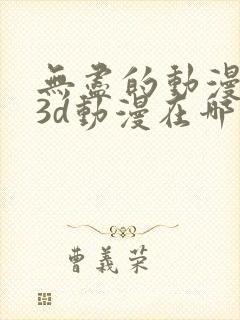 無盡的動漫
3d動漫在哪
曹義荣